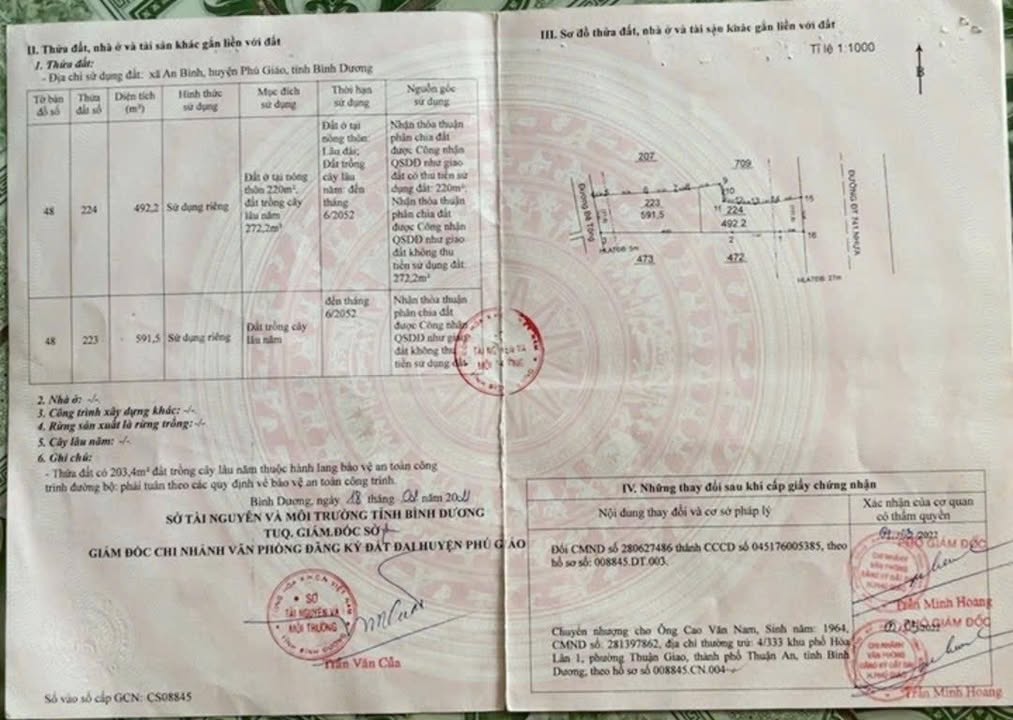 II. Thửa đất, nhà ở và tài sản khác gắn liền với đất
1. Thửa đất:
- Địa chỉ sử dụng đất: xã An Bình, huyện Phú Giáo, tỉnh Bình Dương
Tờ bản đồ số
Thửa đất số
Diện tích (m²)
Hình thức sử dụng
Mục đích sử dụng
Thời hạn sử dụng
Nguồn gốc sử dụng
48
224
492,2
Sử dụng riêng
Đất ở tại nông
thôn 220m²,
đất trồng cây
lâu năm
272,2m²
Đất ở tại
nông thôn:
Lâu dài;
Đất trồng
cây lâu
năm: đến
tháng
6/2052
Nhận thỏa thuận
phân chia đất
được Công nhận
QSDĐ như giao
đất có thu tiền sử
dụng đất: 220m²
Nhận thỏa thuận
phân chia đất
được Công nhận
QSDĐ như giao
đất không thu
tiền sử dụng đất:
272,2m²
48
223
591,5
Sử dụng riêng
Đất trồng cây
lâu năm
đến tháng
6/2052
Nhận thỏa thuận
phân chia đất
được Công nhận
QSDĐ như giao
đất không thu
tiền sử dụng đất
2. Nhà ở: -/-.
3. Công trình xây dựng khác: -/-.
4. Rừng sản xuất là rừng trồng:-/-
5. Cây lâu năm: -/-
6. Ghi chú:
- Thửa đất có 203,4m² đất trồng cây lâu năm thuộc hành lang bảo vệ an toàn công
trình đường bộ: phải tuân theo các quy định về bảo vệ an toàn công trình.
Bình Dương, ngày 18 tháng 01 năm 20
SỞ TÀI NGUYÊN VÀ MÔI TRƯỜNG TỈNH BÌNH DƯƠNG
TUQ. GIÁM ĐỐC SỞ
GIÁM ĐỐC CHI NHÁNH VĂN PHÒNG ĐĂNG KÝ ĐẤT ĐAI HUYỆN PHÚ GIÁO
SỞ
TÀI NGUYÊN VÀ
MÔI TRƯỜNG
Trần Văn Của
Số vào sổ cấp GCN: CS08845
III. Sơ đồ thửa đất, nhà ở và tài sản khác gắn liền với đất
Tỉ lệ 1:1000
B
207
709
9
10
11
15
16
223
591,5
224
492.2
2
1
473
472
Đường Bê Tông
ĐƯỜNG ĐT 741 NHỰA
HLATĐB 5m
HLATĐB 27m
IV. Những thay đổi sau khi cấp giấy chứng nhận
Nội dung thay đổi và cơ sở pháp lý
Xác nhận của cơ quan
có thẩm quyền
Đổi CMND số 280627486 thành CCCD số 045176005385, theo
hồ sơ số: 008845.DT.003.
2022
PHÓ GIÁM ĐỐC
CHI NHÁNH
VĂN PHÒNG
ĐĂNG KÝ ĐẤT ĐAI
H.PHÚ GIÁO
Trần Minh Hoang
Chuyển nhượng cho Ông Cao Văn Nam, Sinh năm: 1964,
CMND số: 281397862, địa chỉ thường trú: 4/333 khu phố Hòa
Lân 1, phường Thuận Giao, thành phố Thuận An, tỉnh Bình
Dương, theo hồ sơ số 008845.CN.004
PHÓ GIÁM ĐỐC
CHI NHÁNH
VĂN PHÒNG
ĐĂNG KÝ ĐẤT ĐAI
H.PHÚ GIÁO
Trần Minh Hoang